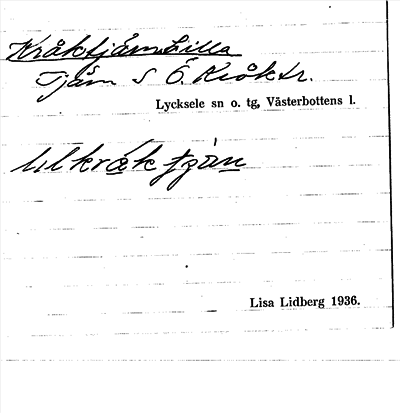 Kråktjärn Lilla
Tjärn S Ö. Kråktr.
Lycksele sn o. tg, Västerbottens l.
lilkråktjän
Lisa Lidberg 1936.